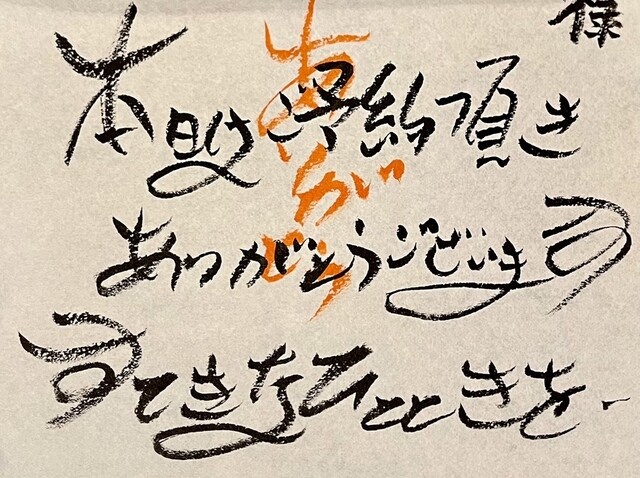 様
本日はご予約頂き
ありがとうございます
すてきなひとときを